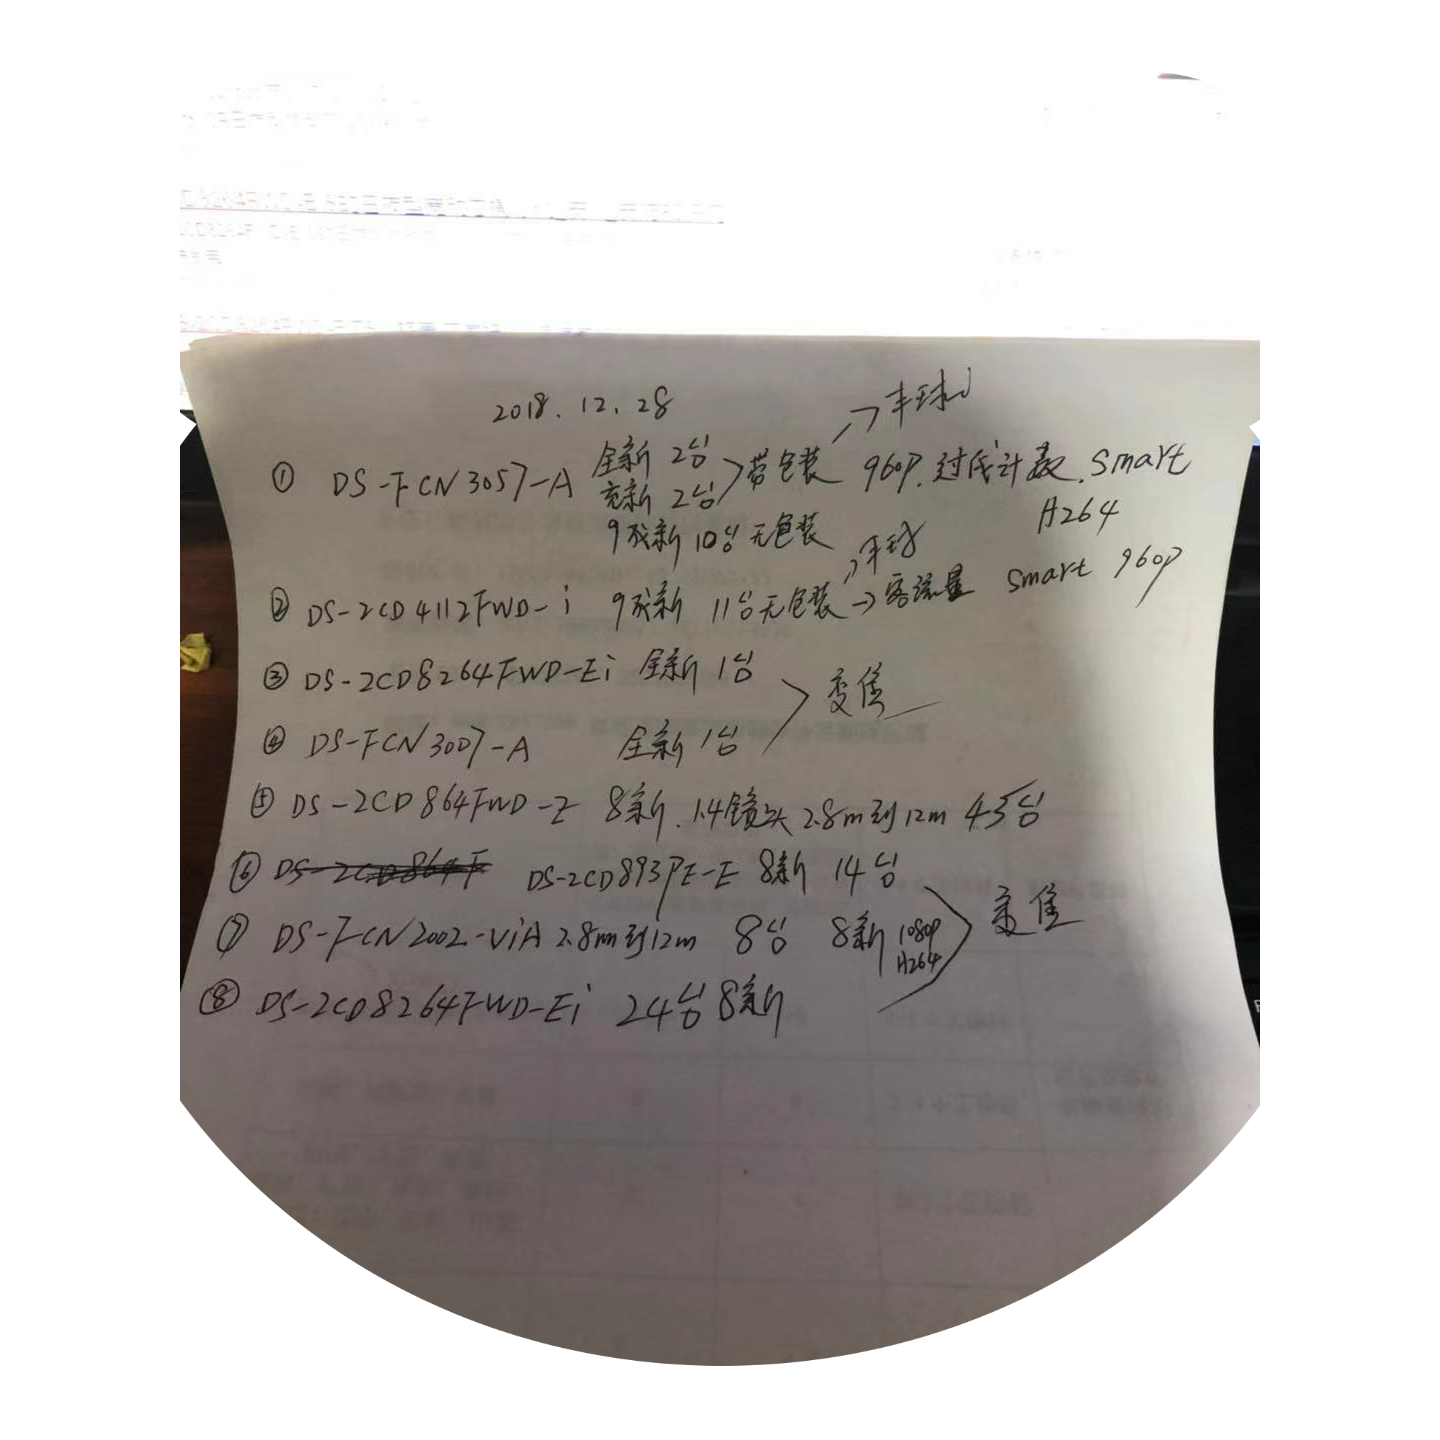 2018.12.28
→半球
① DS-FCN3057-A 全新 2台 >带包装 960P.过线计数.smart
充新 2台 H264
9成新 10台 无包装
→半球
② DS-2CD4112FWD-i 9成新 11台无包装→客流量 smart 960P
③ DS-2CD8264FWD-Ei 全新 1台
>变焦
④ DS-FCN3007-A 全新 1台
⑤ DS-2CD864FWD-E 8新.1.4镜头 2.8m到12m 45台
⑥ DS-2CD864F DS-2CD893PE-E 8新 14台
⑦ DS-FCN2002-ViA 2.8m到12m 8台 8新 1080P
H264
>变焦
⑧ DS-2CD8264FWD-Ei 24台 8新